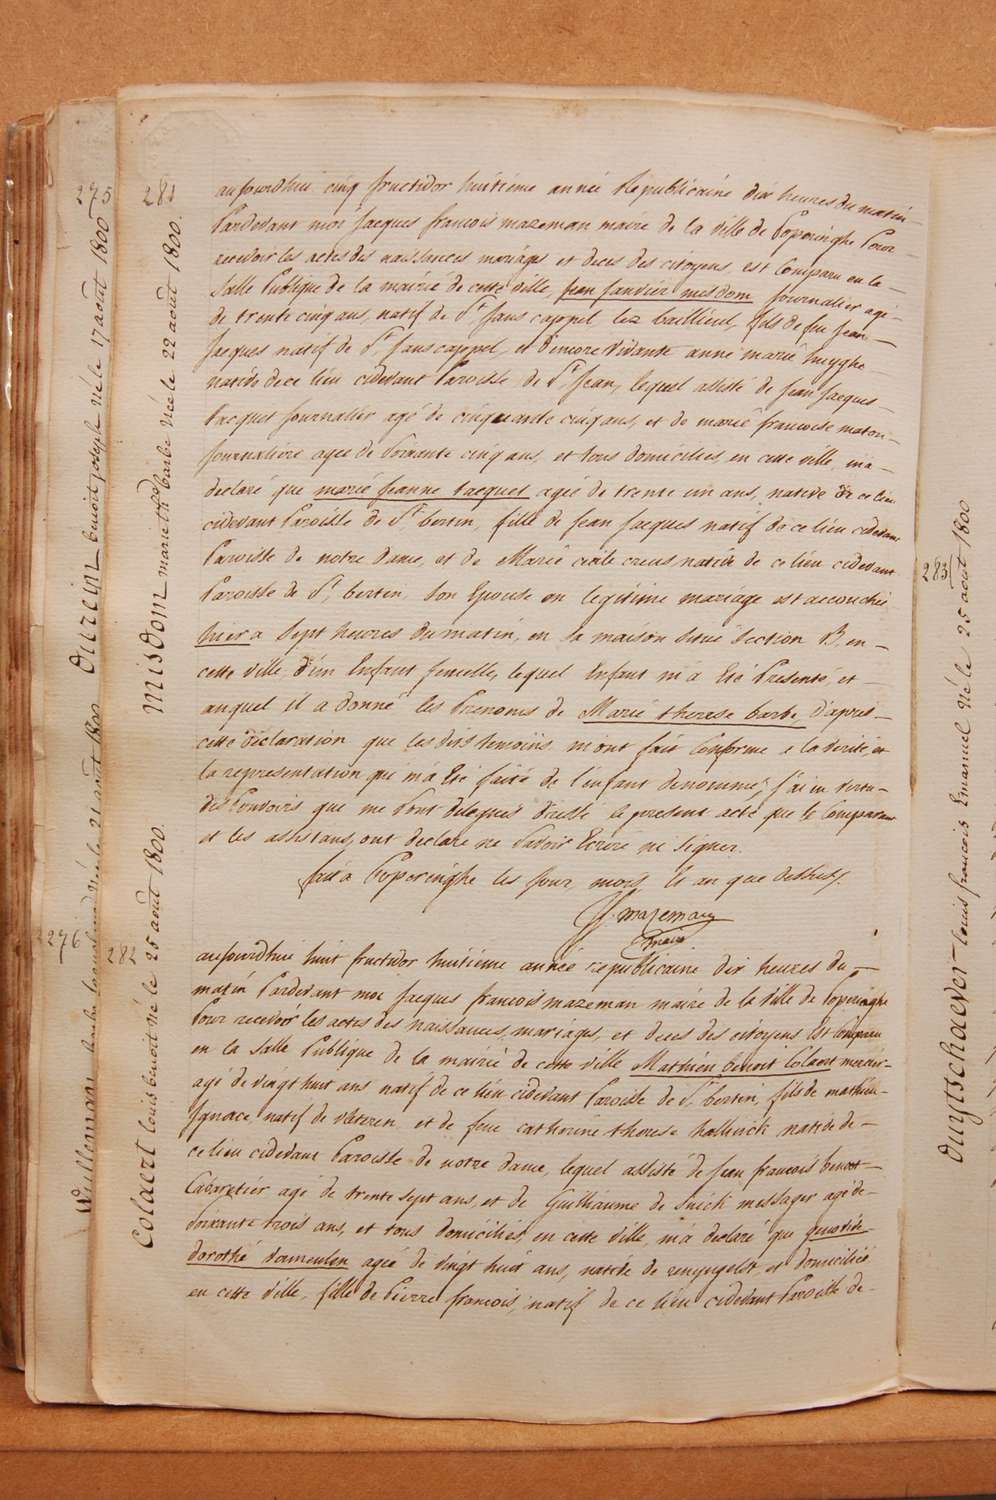 275
Durein benoit joseph Né le 17 août 1800
276
Née le 21 août 1800
281
Misdom marie thse barbe Née le 22 août 1800.
aujourdhui cinq fructidor huitième année Républicaine dix heures du matin
Pardevant moi Jacques francois mazeman maire de la ville de Poperinghe Pour
recevoir les actes des naissances mariages et deces des citoyens, est Comparu en la
Salle Publique de la mairie de cette ville, Jean Janvier misdom Journalier agé
de trente cinq ans, natif de St Jans cappel, lez baillieul, fils de feu Jean
Jacques natif de St Jans cappel, et d'encore Vivante anne marie huyghe
native de ce lieu cidevant Paroisse de St Jean, lequel assisté de Jean Jacques
tacquet Journalier agé de cinquante cinq ans, et de marie francoise maton
Journalière agée de Soixante cinq ans, et tous domiciliés en cette ville, m'a
declaré que marie Jeanne tacquet agée de trente un ans, native de ce lieu
cidevant Paroisse de St bertin, fille de Jean Jacques natif de ce lieu cidevant
Paroisse de notre dame, et de Marie cicile creus, native de ce lieu cidevant
Paroisse de St bertin, Son Epouse en legitime mariage est accouchée
hier a Sept heures du matin, en sa maison Située Section B, en
cette ville, d'un Enfant femelle, lequel Enfant m'a Eté Presenté, et
auquel il a donné les Prenoms de Marie therese barbe, D'apres
cette declaration que les dits temoins m'ont fait Conforme a la verité, et
la representation qui m'a Eté faite de l'enfant denommé, J'ai en vertu
des Pouvoirs que me Sont delegués dressé le present acte que le Comparant
et les assistans, ont declaré ne Savoir Ecrire ni Signer.
fait a Poperinghe les Jour mois, et an que dessus.
J. mazeman
maire
282
Colaert louis benoit né le 25 août 1800.
aujourdhui huit fructidor huitième année republicaine dix heures du
matin Pardevant moi Jacques francois mazeman maire de la ville de Poperinghe
Pour recevoir les actes des naissances, mariages, et deces des citoyens est Comparu
en la Salle Publique de la mairie de cette ville Mathieu benoit Colaert
agé de vingt huit ans natif de ce lieu cidevant Paroisse de St bertin, fils de mathieu
Ignace, natif de vleteren et de feue catherine therese natide de
ce lieu cidevant Paroisse de notre dame, lequel assisté de Jean francois benoot
Cabaretier agé de trente sept ans, et de Guilliaume de messager agé de
soixante trois ans, et tous domiciliés, en cette ville, m'a declaré que
dorothé vermeulen agée de vingt huit ans, native de renyngelst et domiciliée
en cette ville, fille de Pierre francois, natif de ce lieu cidevant Paroisse de
283
Duytschaever louis francois Emanuel Né le 25 août 1800